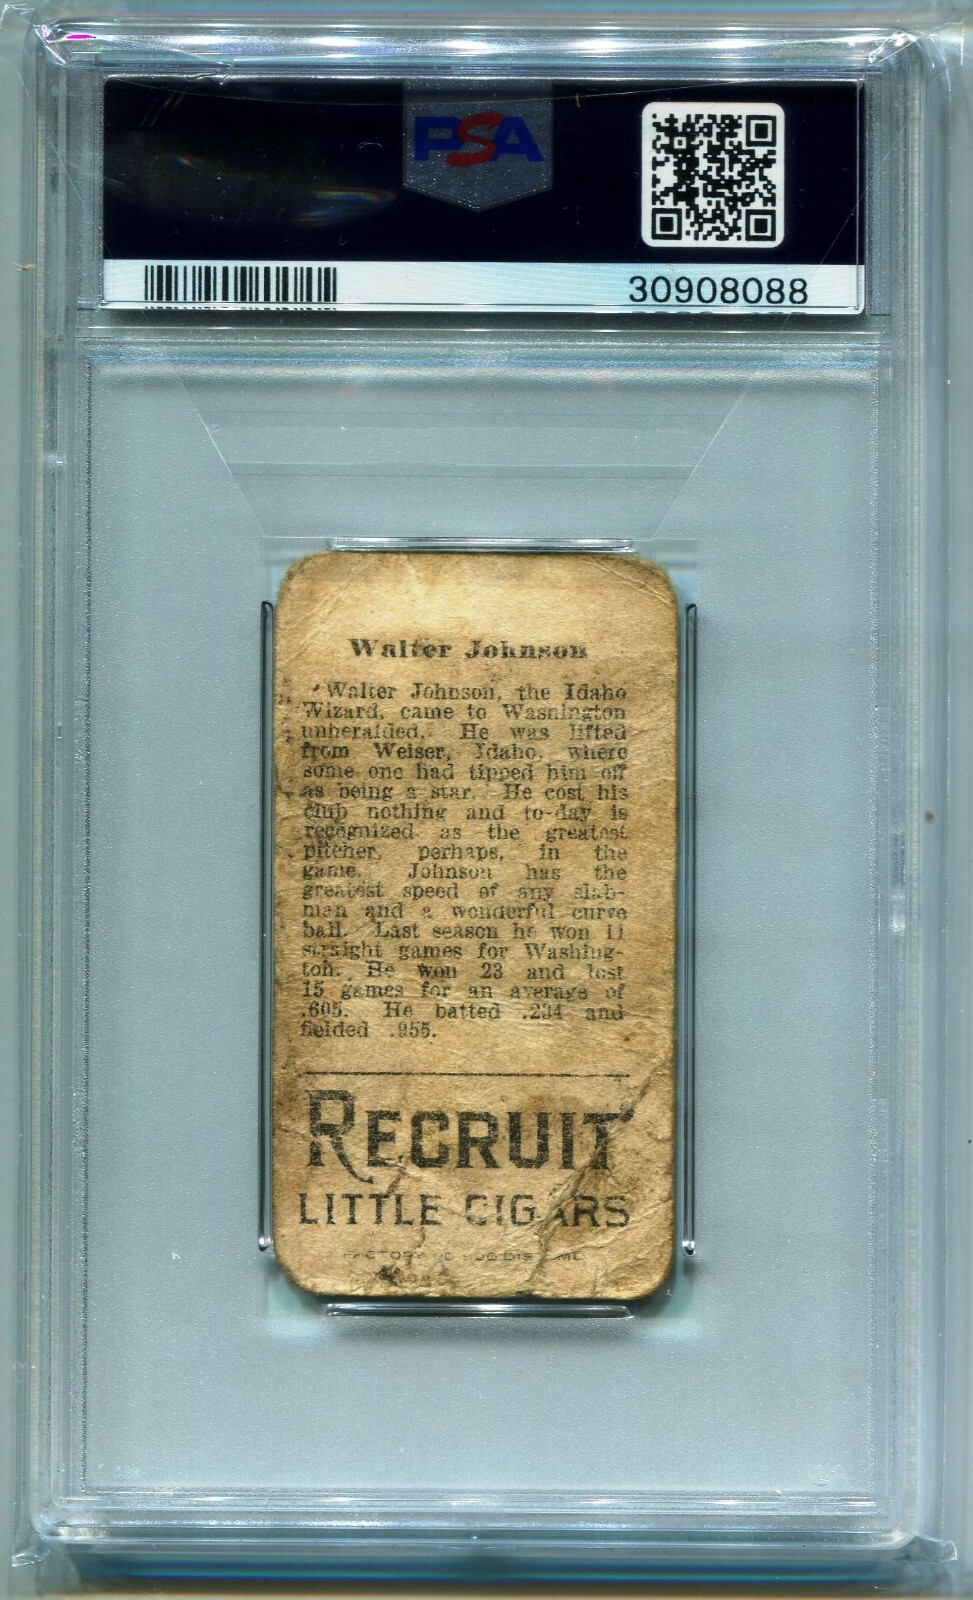 PSA
30908088
Walter Johnson
Walter Johnson, the Idaho
Wizard, came to Washington
unheralded. He was lifted
from Weiser, Idaho, where
some one had tipped him off
as being a star. He cost his
club nothing and to-day is
recognized as the greatest
pitcher, perhaps, in the
game. Johnson has the
greatest speed of any slab-
man and a wonderful curve
ball. Last season he won 11
straight games for Washing-
ton. He won 23 and lost
15 games for an average of
.605. He batted .234 and
fielded .955.
RECRUIT
LITTLE CIGARS
FACTORY